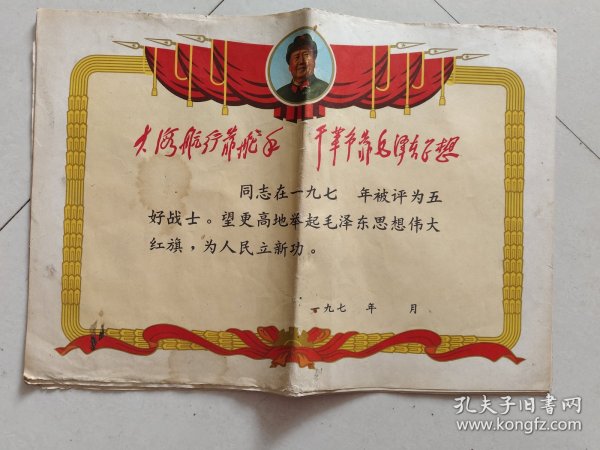 大海航行靠舵手 干革命靠毛泽东思想
同志在一九七 年被评为五
好战士。望更高地举起毛泽东思想伟大
红旗，为人民立新功。
一九七 年 月
孔夫子旧书网
www.kongfz.com